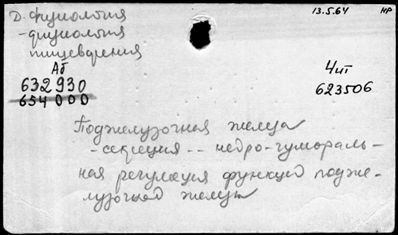 Д. физиология
13.5.64 НР
- физиология
пищеварения
Аб
632930
654000
Чит
623506
Поджелузочная железа
- секреция -- недро-гумораль-
ная регуляция функций поджe-
лузочной железы